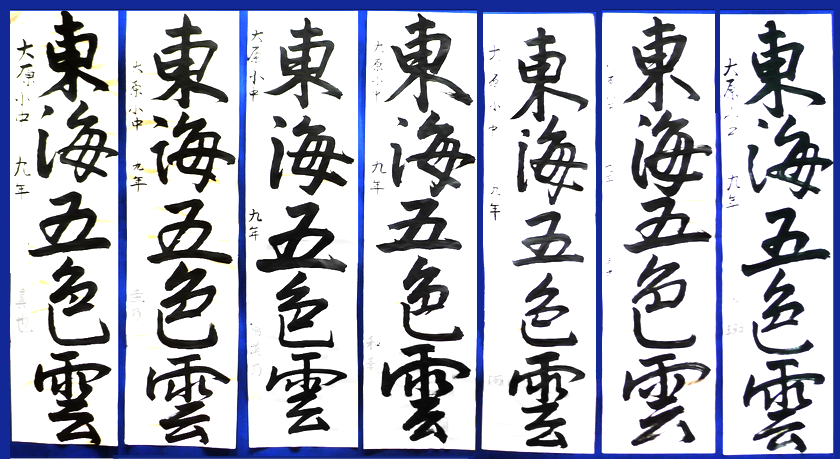 東海五色雲
大原小中 九年
東海五色雲
大原小中 九年
東海五色雲
大原小中 九年
東海五色雲
大原小中 九年
東海五色雲
大原小中 九年
東海五色雲
東海五色雲
大原小中 九年